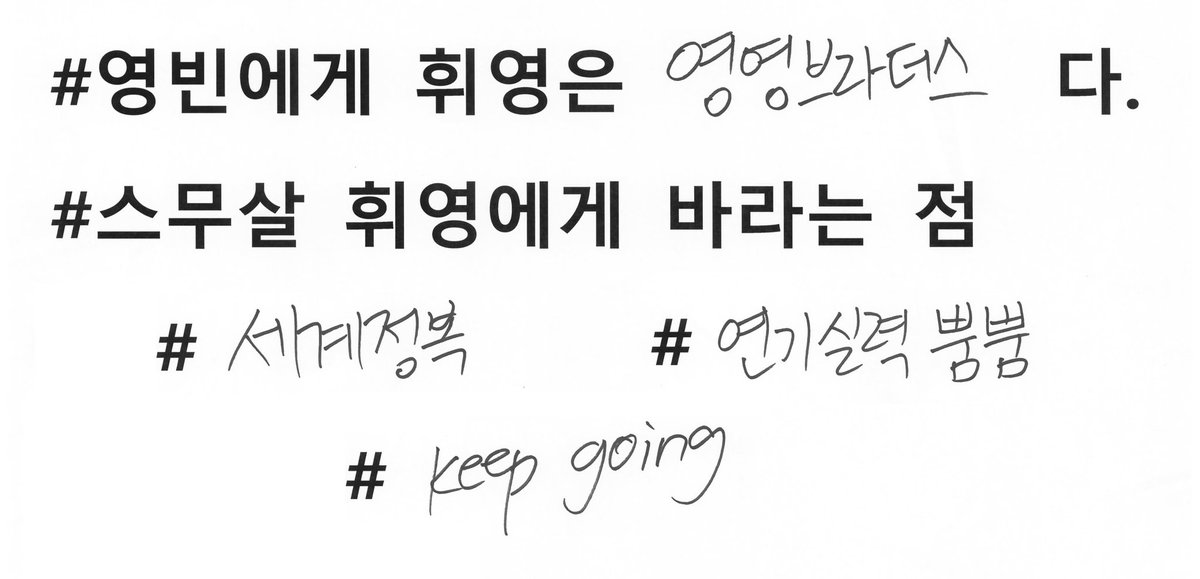 #영빈에게 휘영은 영영브라더스 다.
#스무살 휘영에게 바라는 점
# 세계정복 # 연기실력 뿜뿜
# keep going